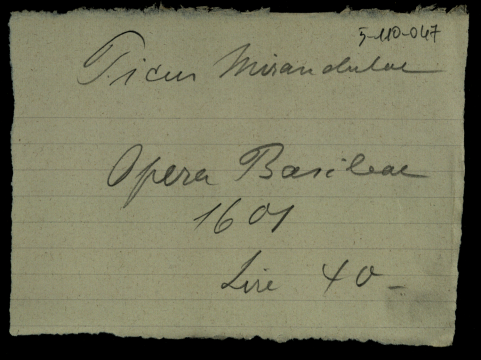 5-110-047
Picus Mirandulae
Opera Basileae
1601
Lire 40-